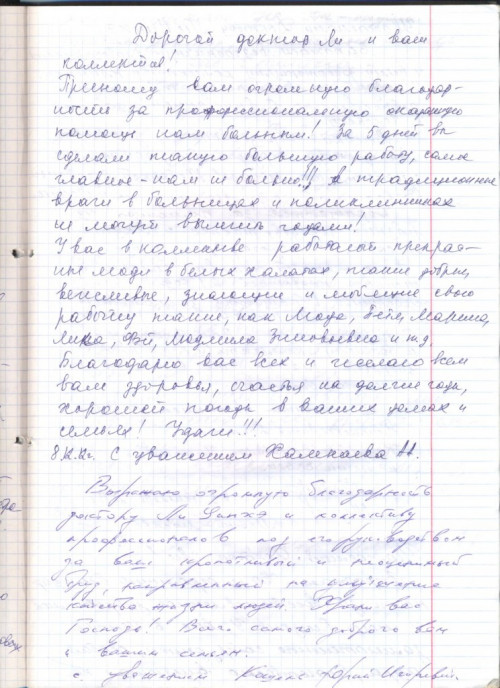 Дорогой доктор Ли и ваш
коллектив!
Приношу вам огромную благодар-
ность за профессиональную оказанную
помощь нам больным! За 5 дней вы
сделали такую большую работу, самое
главное - нам не больно!!! А традиционные
врачи в больницах и поликлиниках
не могут вылечить годами!
У вас в коллективе работают прекрас-
ные люди в белых халатах, такие добрые,
вежливые, знающие и любящие свою
работу такие, как Марина,
Людмила Зиновьевна и т.д.
Благодарю вас всех и желаю всем
вам здоровья, счастья на долгие годы,
хорошей погоды в ваших домах и
семьях! Удачи!!!
С уважением
Выражаю огромную благодарность
доктору Ли и коллективу
профессионалов под его руководством
за ваш кропотливый и неоценимый
труд, направленный на улучшение
качества жизни людей. Храни вас
Господь! Всего самого доброго вам
и вашим семьям.
с уважением Юрий Игоревич.